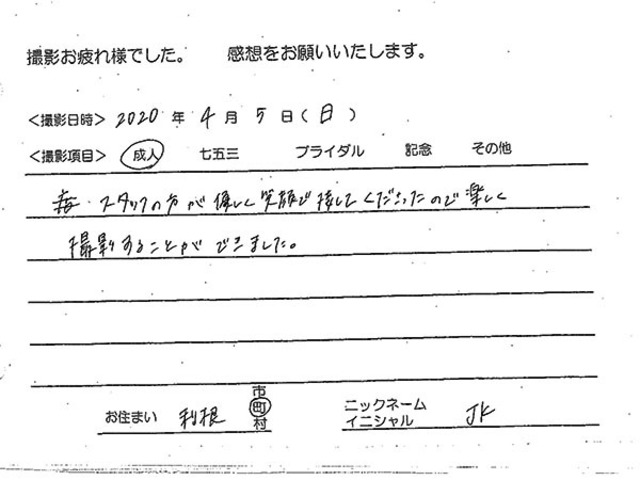 撮影お疲れ様でした。 感想をお願いいたします。
<撮影日時> 2020 年 4 月 5 日(日)
<撮影項目> 成人 七五三 ブライダル 記念 その他
スタッフの方が優しく笑顔で接してくださったので楽しく
撮影することができました。
お住まい 利根 市町村
ニックネーム イニシャル JK